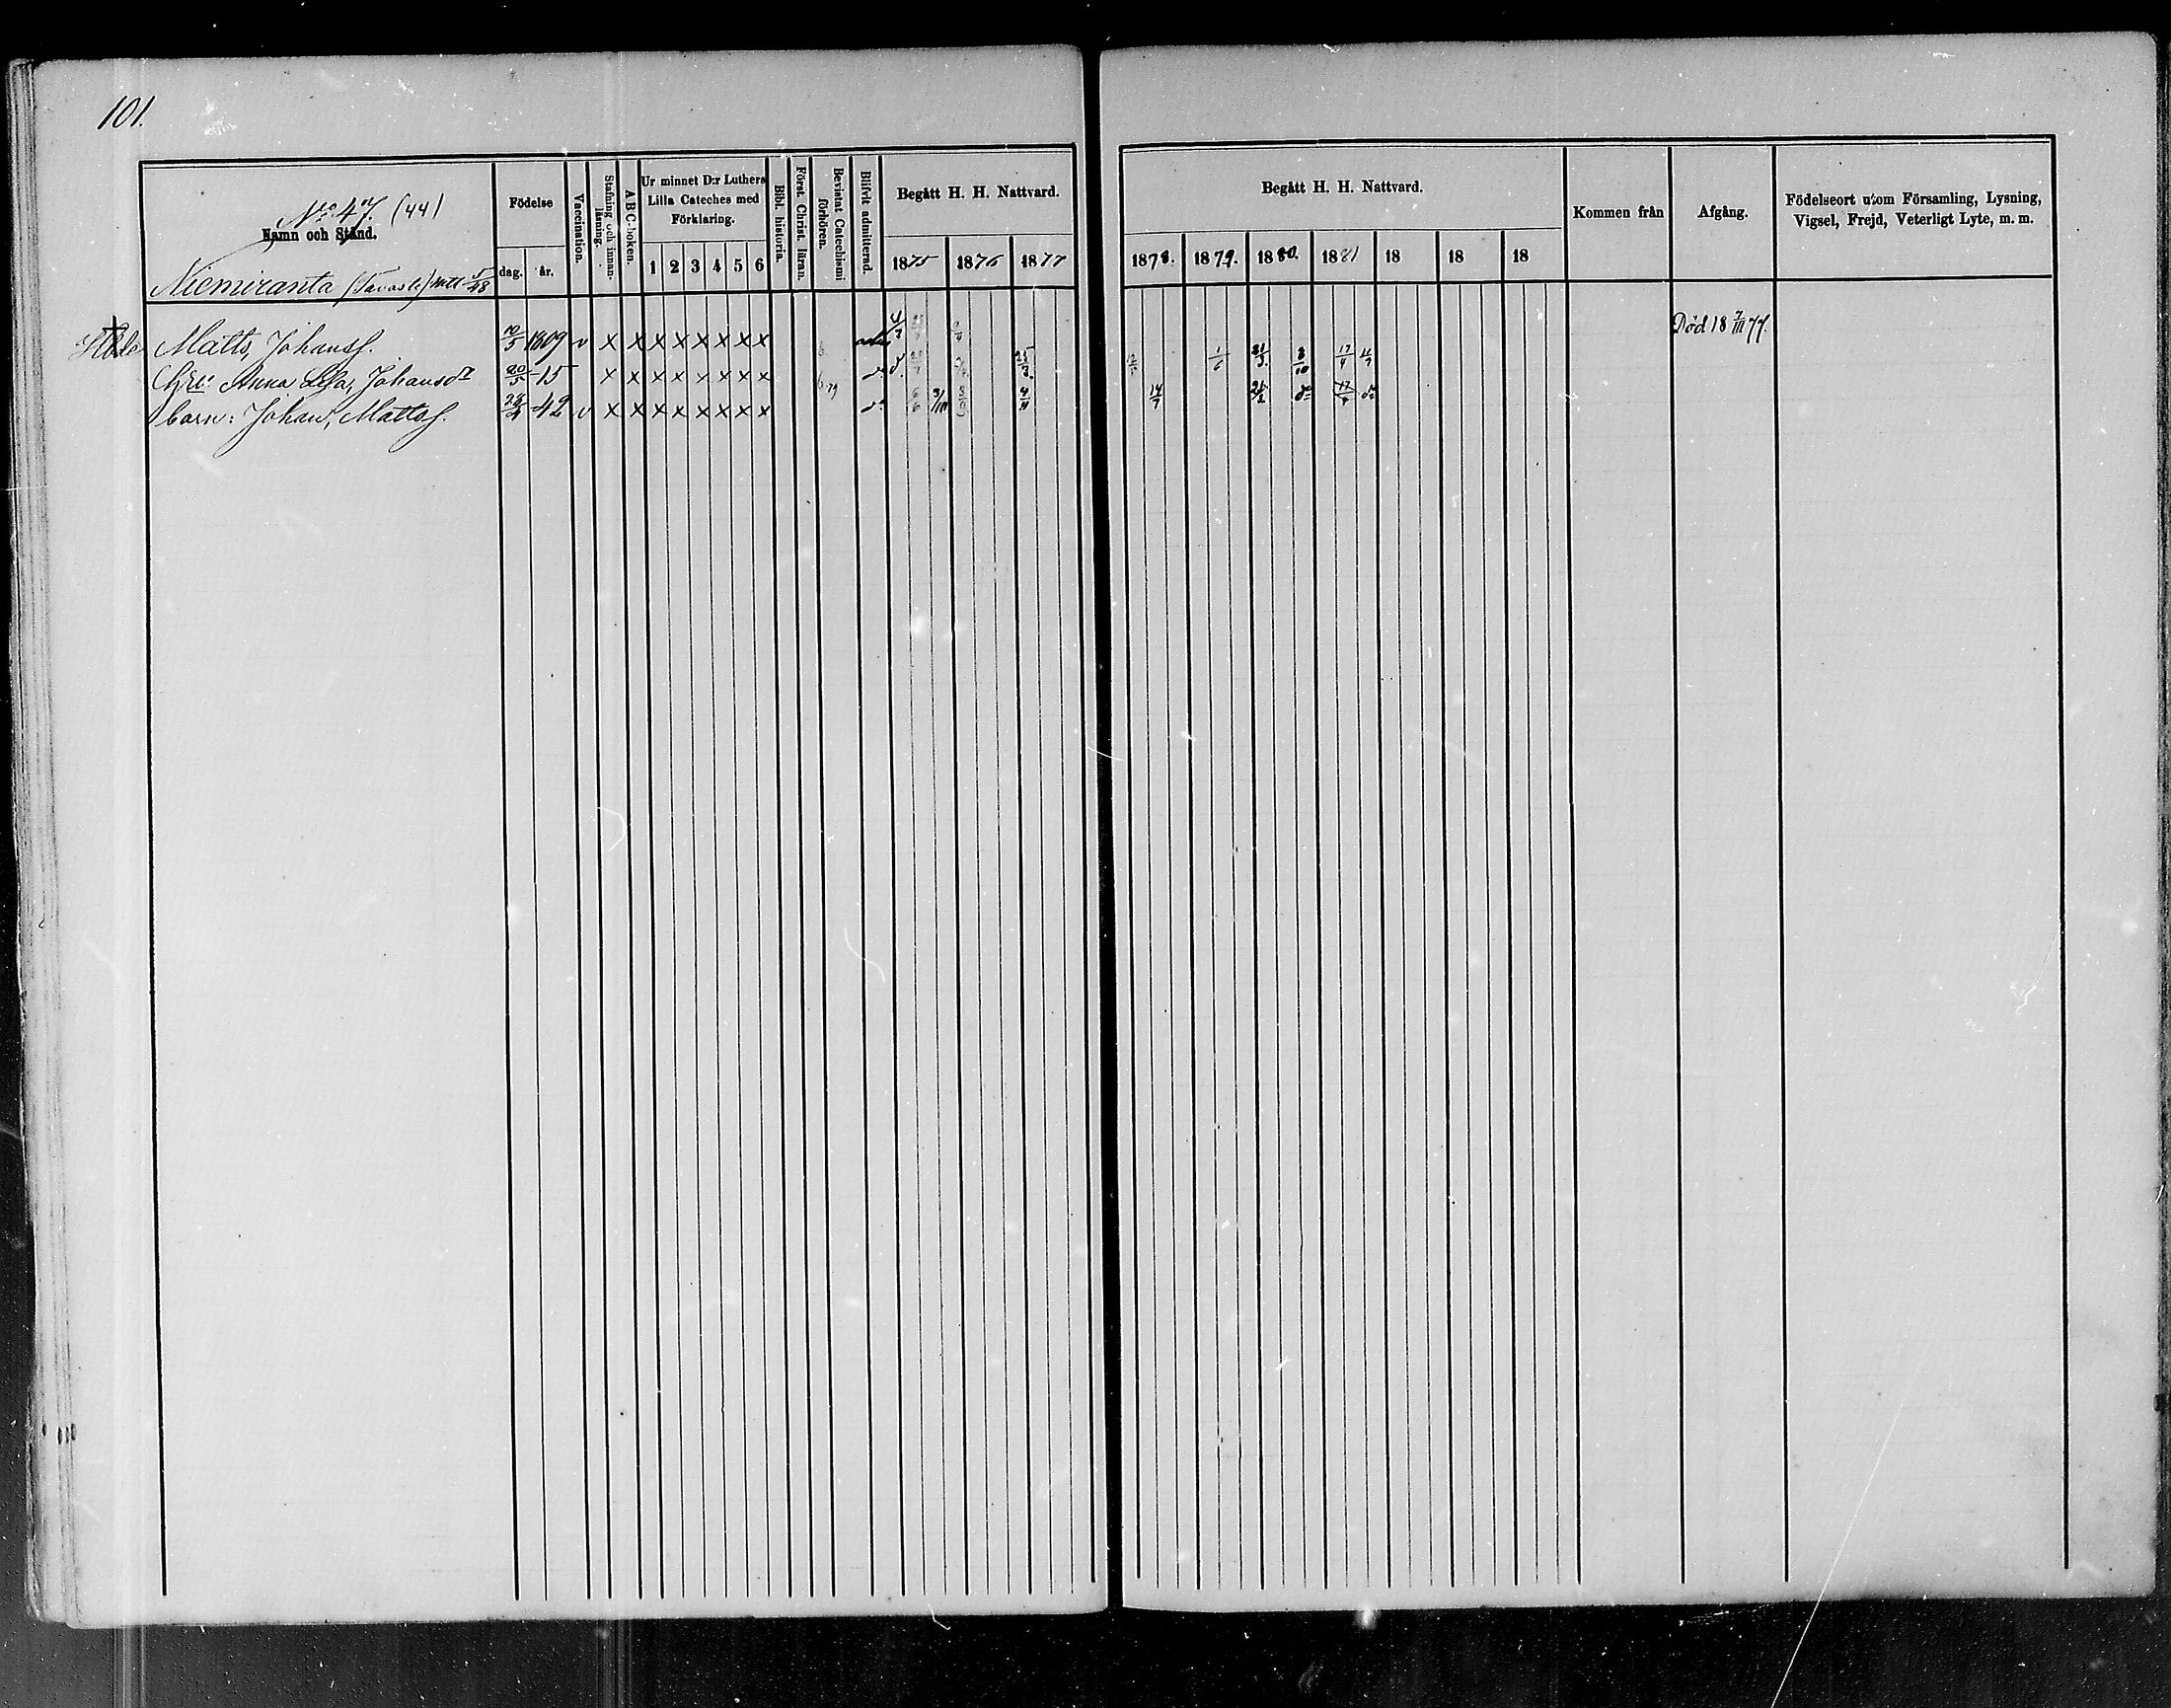 101.
No 47. (44)
Namn och Stånd.
Niemiranta (Tavasti) mtl 5/48
Födelse
dag. år.
Vaccination.
Stafning och innan-läsning.
A B C-boken.
Ur minnet D:r Luthers
Lilla Cateches med
Förklaring.
1 2 3 4 5 6
Bibl. historia.
Först. Christ. läran.
Bevistat Catechismi förhören.
Blifvit admitterad.
Begått H. H. Nattvard.
1875 1876 1877
Begått H. H. Nattvard.
1878. 1879. 1880. 1881 18 18 18
Kommen från
Afgång.
Födelseort utom Församling, Lysning,
Vigsel, Frejd, Veterligt Lyte, m. m.
Matts, Johanss. 10/5 1809 v x x x x x x x x 4/3 Död 18 7/III 77.
Anna Lisa, Johansdr 20/5 -15 x x x x x x x x 25/3 1/6 21/3 3/10 17/4 11/9
barn: Johan, Mattss. 28/4 -42 v x x x x x x x x 6/6 4/11 14/7 21/3 do 17/4 do